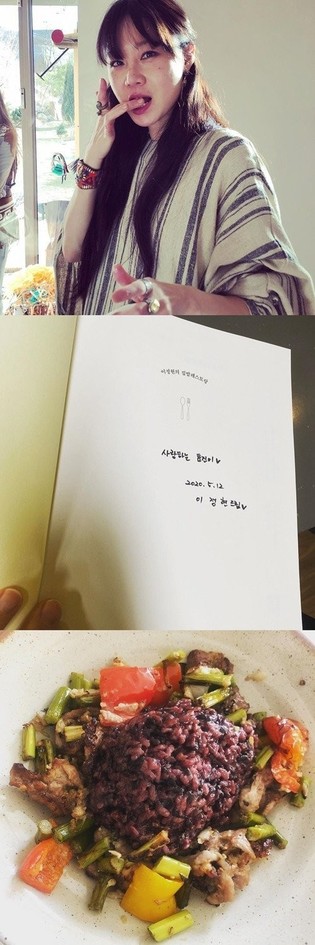 이정현의 집밥레스토랑
사랑하는 효진이♥
2020. 5. 12
이 정 현 드림♥